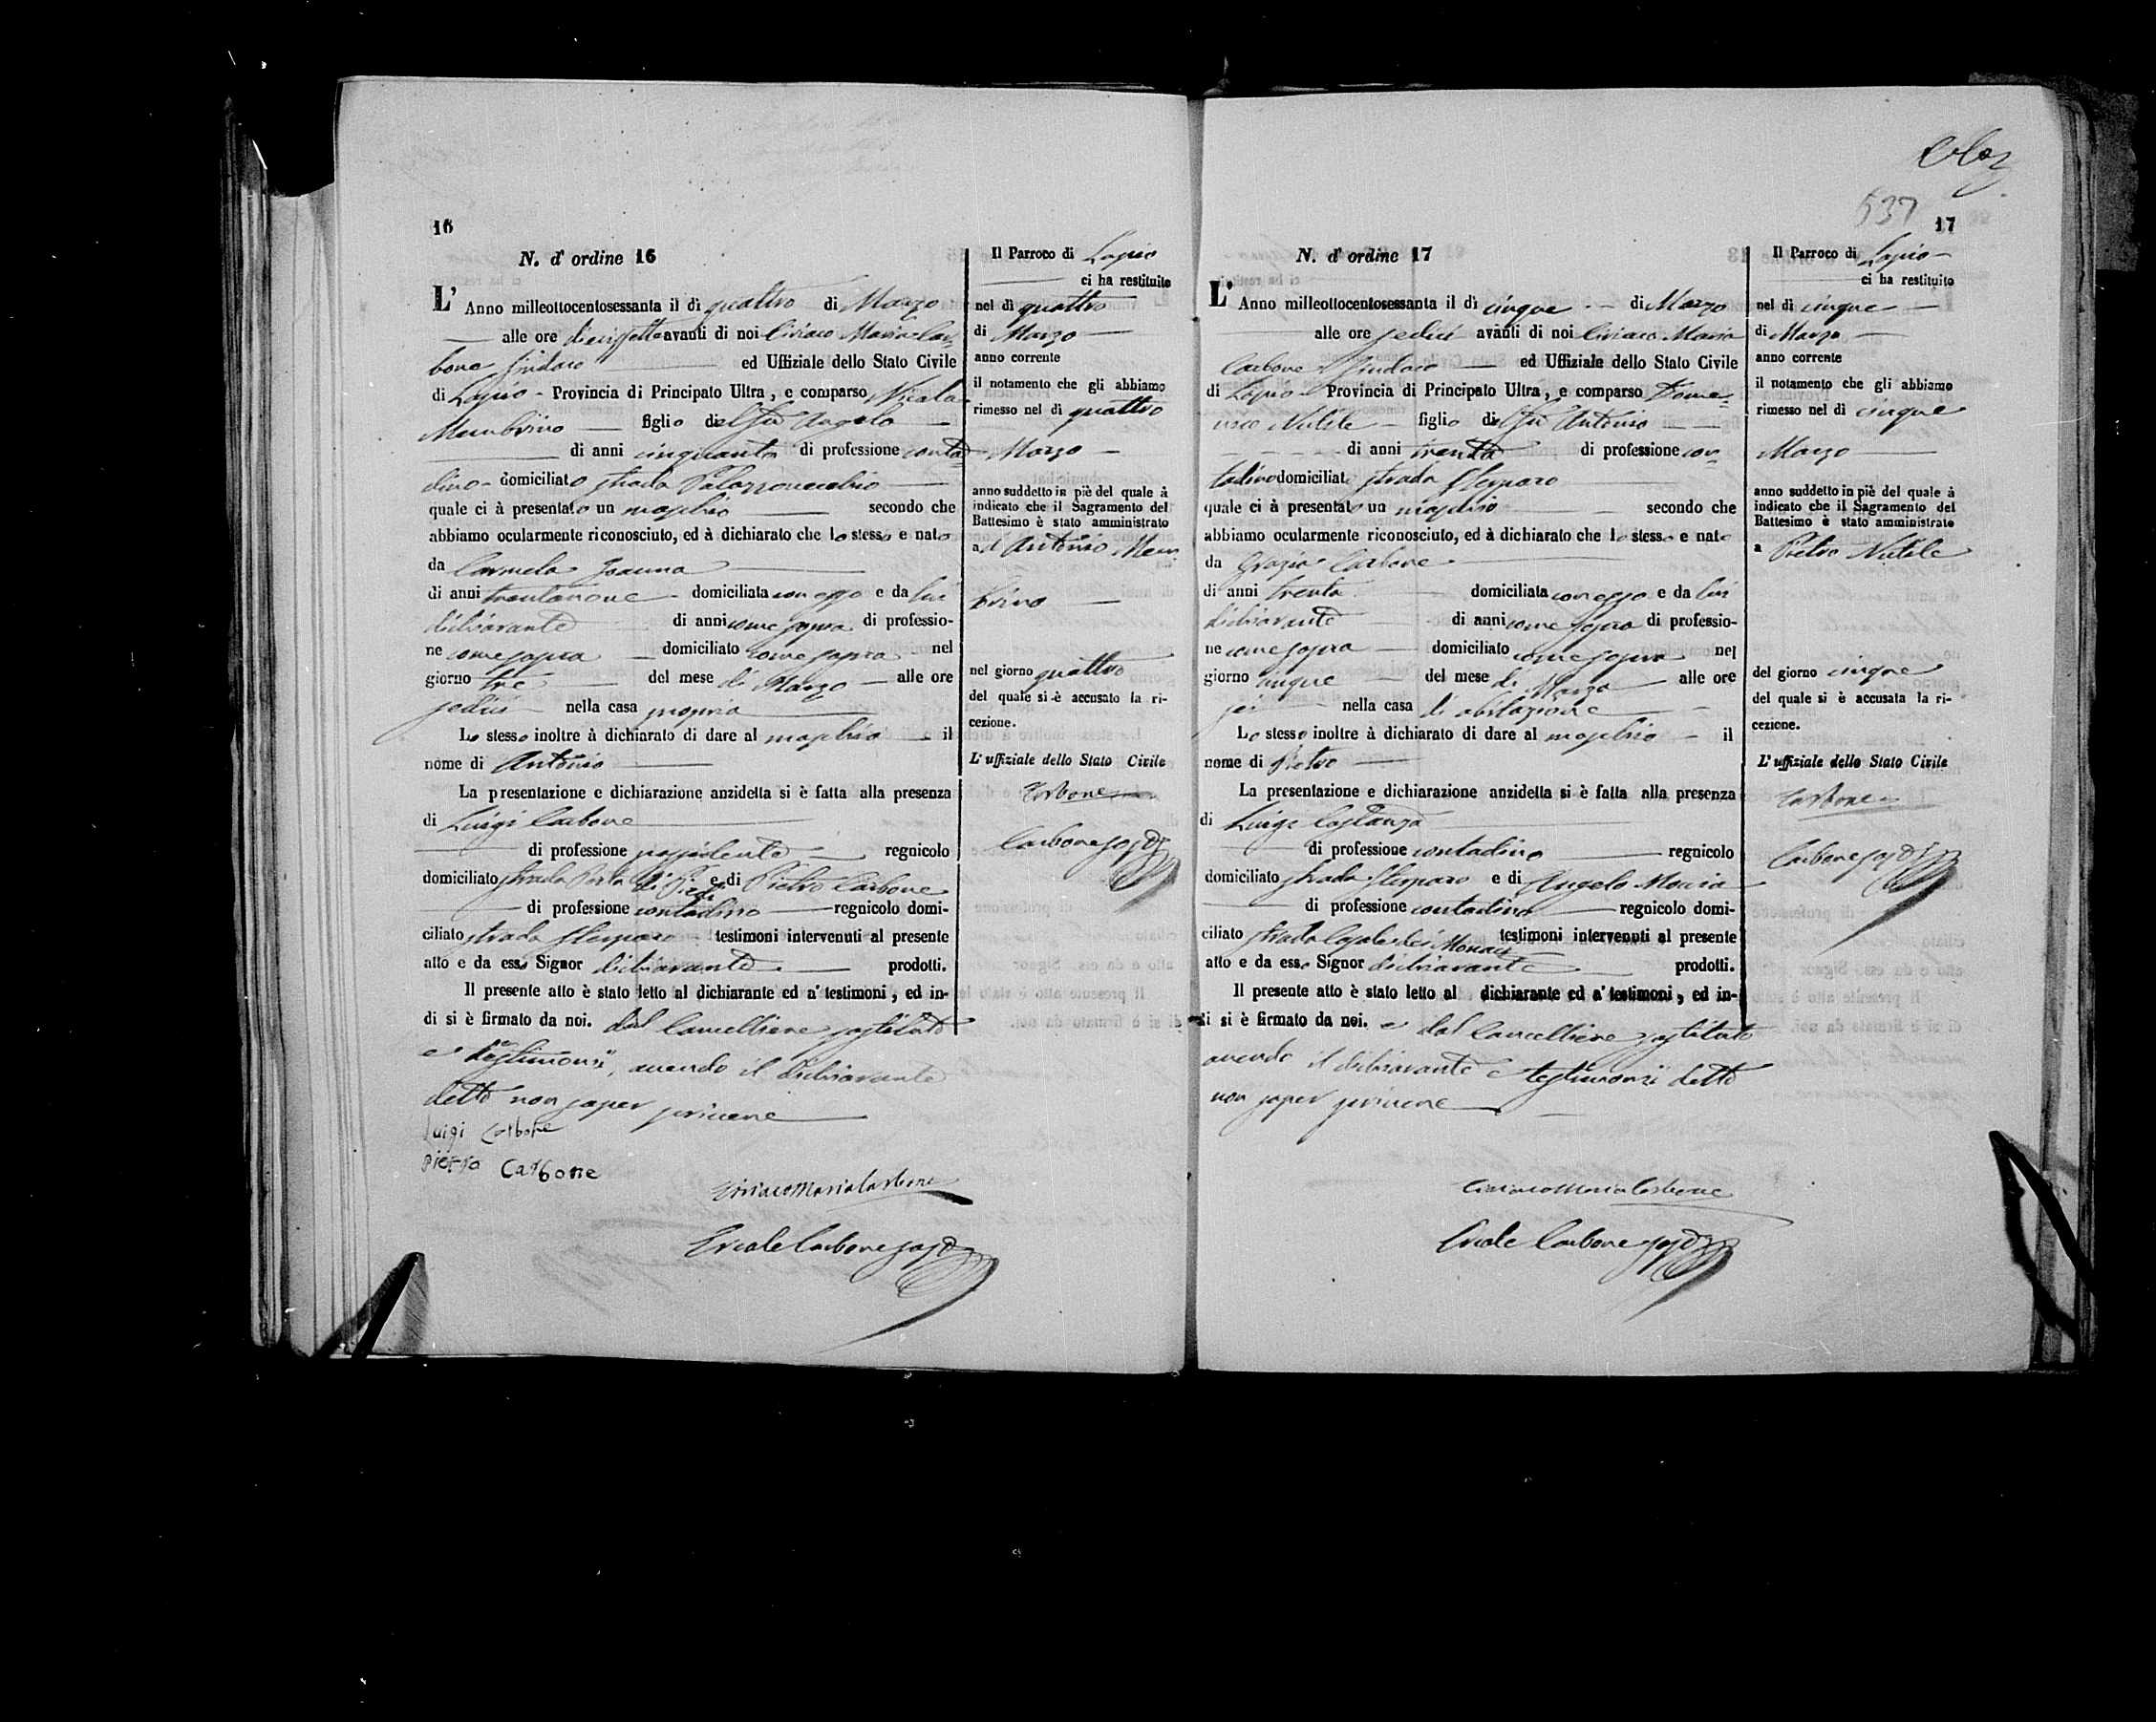 16
N. d' ordine 16
L' Anno milleottocentosessanta il dì quattro di Marzo
alle ore diecissette avanti di noi Ciriaco Maria Car=
bone Sindaco ed Uffiziale dello Stato Civile
di Lapio - Provincia di Principato Ultra, e comparso Nicola
figlio del fu Angelo
di anni cinquanta di professione conta=
dino - domiciliato strada Palazzovecchio
quale ci à presentato un maschio secondo che
abbiamo ocularmente riconosciuto, ed à dichiarato che lo stesso e nato
da Carmela
di anni trentanove domiciliata con esso e da lui
dichiarante di anni come sopra di professio-
ne come sopra domiciliato come sopra nel
giorno tre del mese di Marzo alle ore
sedici nella casa propria
Lo stesso inoltre à dichiarato di dare al maschio il
nome di Antonio
La presentazione e dichiarazione anzidetta si è fatta alla presenza
di Luigi Carbone
di professione possidente regnicolo
domiciliato strada Porta di e di Pietro Carbone
di professione contadino regnicolo domi-
ciliato strada testimoni intervenuti al presente
atto e da esso Signor dichiarante prodotti.
Il presente atto è stato letto al dichiarante ed a' testimoni, ed in-
di si è firmato da noi. dal Cancelliere sostituto
e testimonii, avendo il dichiarante
detto non saper scrivere
Luigi Carbone
Pietro Carbone
Ciriaco Maria Carbone
Ercole Carbone sost
Il Parroco di Lapio
ci ha restituito
nel dì quattro
di Marzo
anno corrente
il notamento che gli abbiamo
rimesso nel dì quattro
Marzo
anno suddetto in piè del quale à
indicato che il Sagramento del
Battesimo è stato amministrato
ad Antonio
nel giorno quattro
del quale si è accusato la ri-
cezione.
L' uffiziale dello Stato Civile
Carbone
Carbone sost
537
17
N. d' ordine 17
L' Anno milleottocentosessanta il dì cinque di Marzo
alle ore sedici avanti di noi Ciriaco Maria
Carbone Sindaco ed Uffiziale dello Stato Civile
di Lapio Provincia di Principato Ultra, e comparso Dome=
nico Nutile figlio del fu Antonio
di anni trenta di professione con=
tadino domiciliato strada
quale ci à presentato un maschio secondo che
abbiamo ocularmente riconosciuto, ed à dichiarato che lo stesso e nato
da Grazia Carbone
di anni trenta domiciliata con esso e da lui
dichiarante di anni come sopra di professio-
ne come sopra domiciliato come sopra nel
giorno cinque del mese di Marzo alle ore
sei nella casa di abitazione
Lo stesso inoltre à dichiarato di dare al maschio il
nome di Pietro
La presentazione e dichiarazione anzidetta si è fatta alla presenza
di Luigi Costanza
di professione contadino regnicolo
domiciliato strada e di Angelo Maria
di professione contadino regnicolo domi-
ciliato strada Casale dei Monaci testimoni intervenuti al presente
atto e da esso Signor dichiarante prodotti.
Il presente atto è stato letto al dichiarante ed a' testimoni, ed in-
di si è firmato da noi. e dal Cancelliere sostituto
avendo il dichiarante e testimonii detto
non saper scrivere
Ciriaco Maria Carbone
Ercole Carbone sost
Il Parroco di Lapio
ci ha restituito
nel dì cinque
di Marzo
anno corrente
il notamento che gli abbiamo
rimesso nel dì cinque
Marzo
anno suddetto in piè del quale à
indicato che il Sagramento del
Battesimo è stato amministrato
a Pietro Nutile
del giorno cinque
del quale si è accusata la ri-
cezione.
L' uffiziale dello Stato Civile
Carbone
Carbone sost